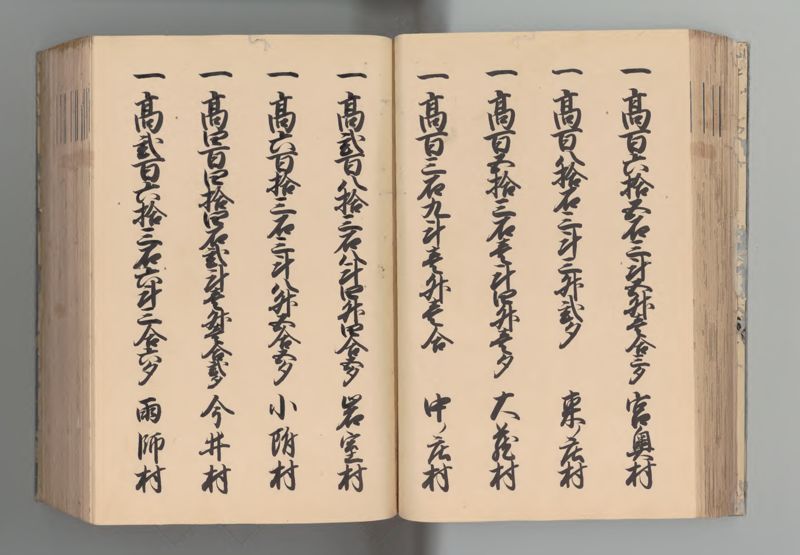 一高百六拾五石三斗五升壱合三夕 宮奥村
一高百八拾石三斗三升弐夕 東ノ庄村
一高百五拾三石壱斗四升壱夕 大蔵村
一高百三石九斗壱升壱合 中ノ庄村
一高弐百八拾三石八斗四升四合五夕 岩室村
一高六百拾三石三斗八升五合五夕 小附村
一高四百四拾四石弐斗壱升壱合弐夕 今井村
一高弐百六拾三石六斗二合六夕 雨師村